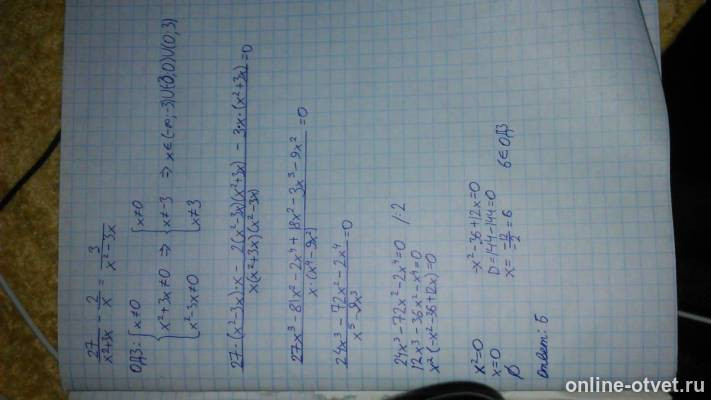 27/(x²+3x) - 2/x = 3/(x²-3x)
ОДЗ: {x≠0 {x²+3x≠0 {x²-3x≠0 ⇒ {x≠0 {x≠-3 {x≠3 ⇒ x∈(-∞;-3)U(-3;0)U(0;3)
(27·(x²-3x)·x - 2(x²-3x)(x²+3x) - 3·x·(x²+3x))/(x(x²+3x)(x²-3x)) =0
(27x³-81x²-2x⁴+18x²-3x³-9x²)/(x·(x⁴-9x²)) =0
(24x³-72x²-2x⁴)/(x⁵-9x³) =0
24x³-72x²-2x⁴=0 /:2
12x³-36x²-x⁴=0
x²(-x²-36+12x)=0
x²=0 -x²-36+12x=0
x=0 D=144-144=0
∅ x= -12/-2 =6 6∈ОДЗ
Ответ: 6
online-otvet.ru